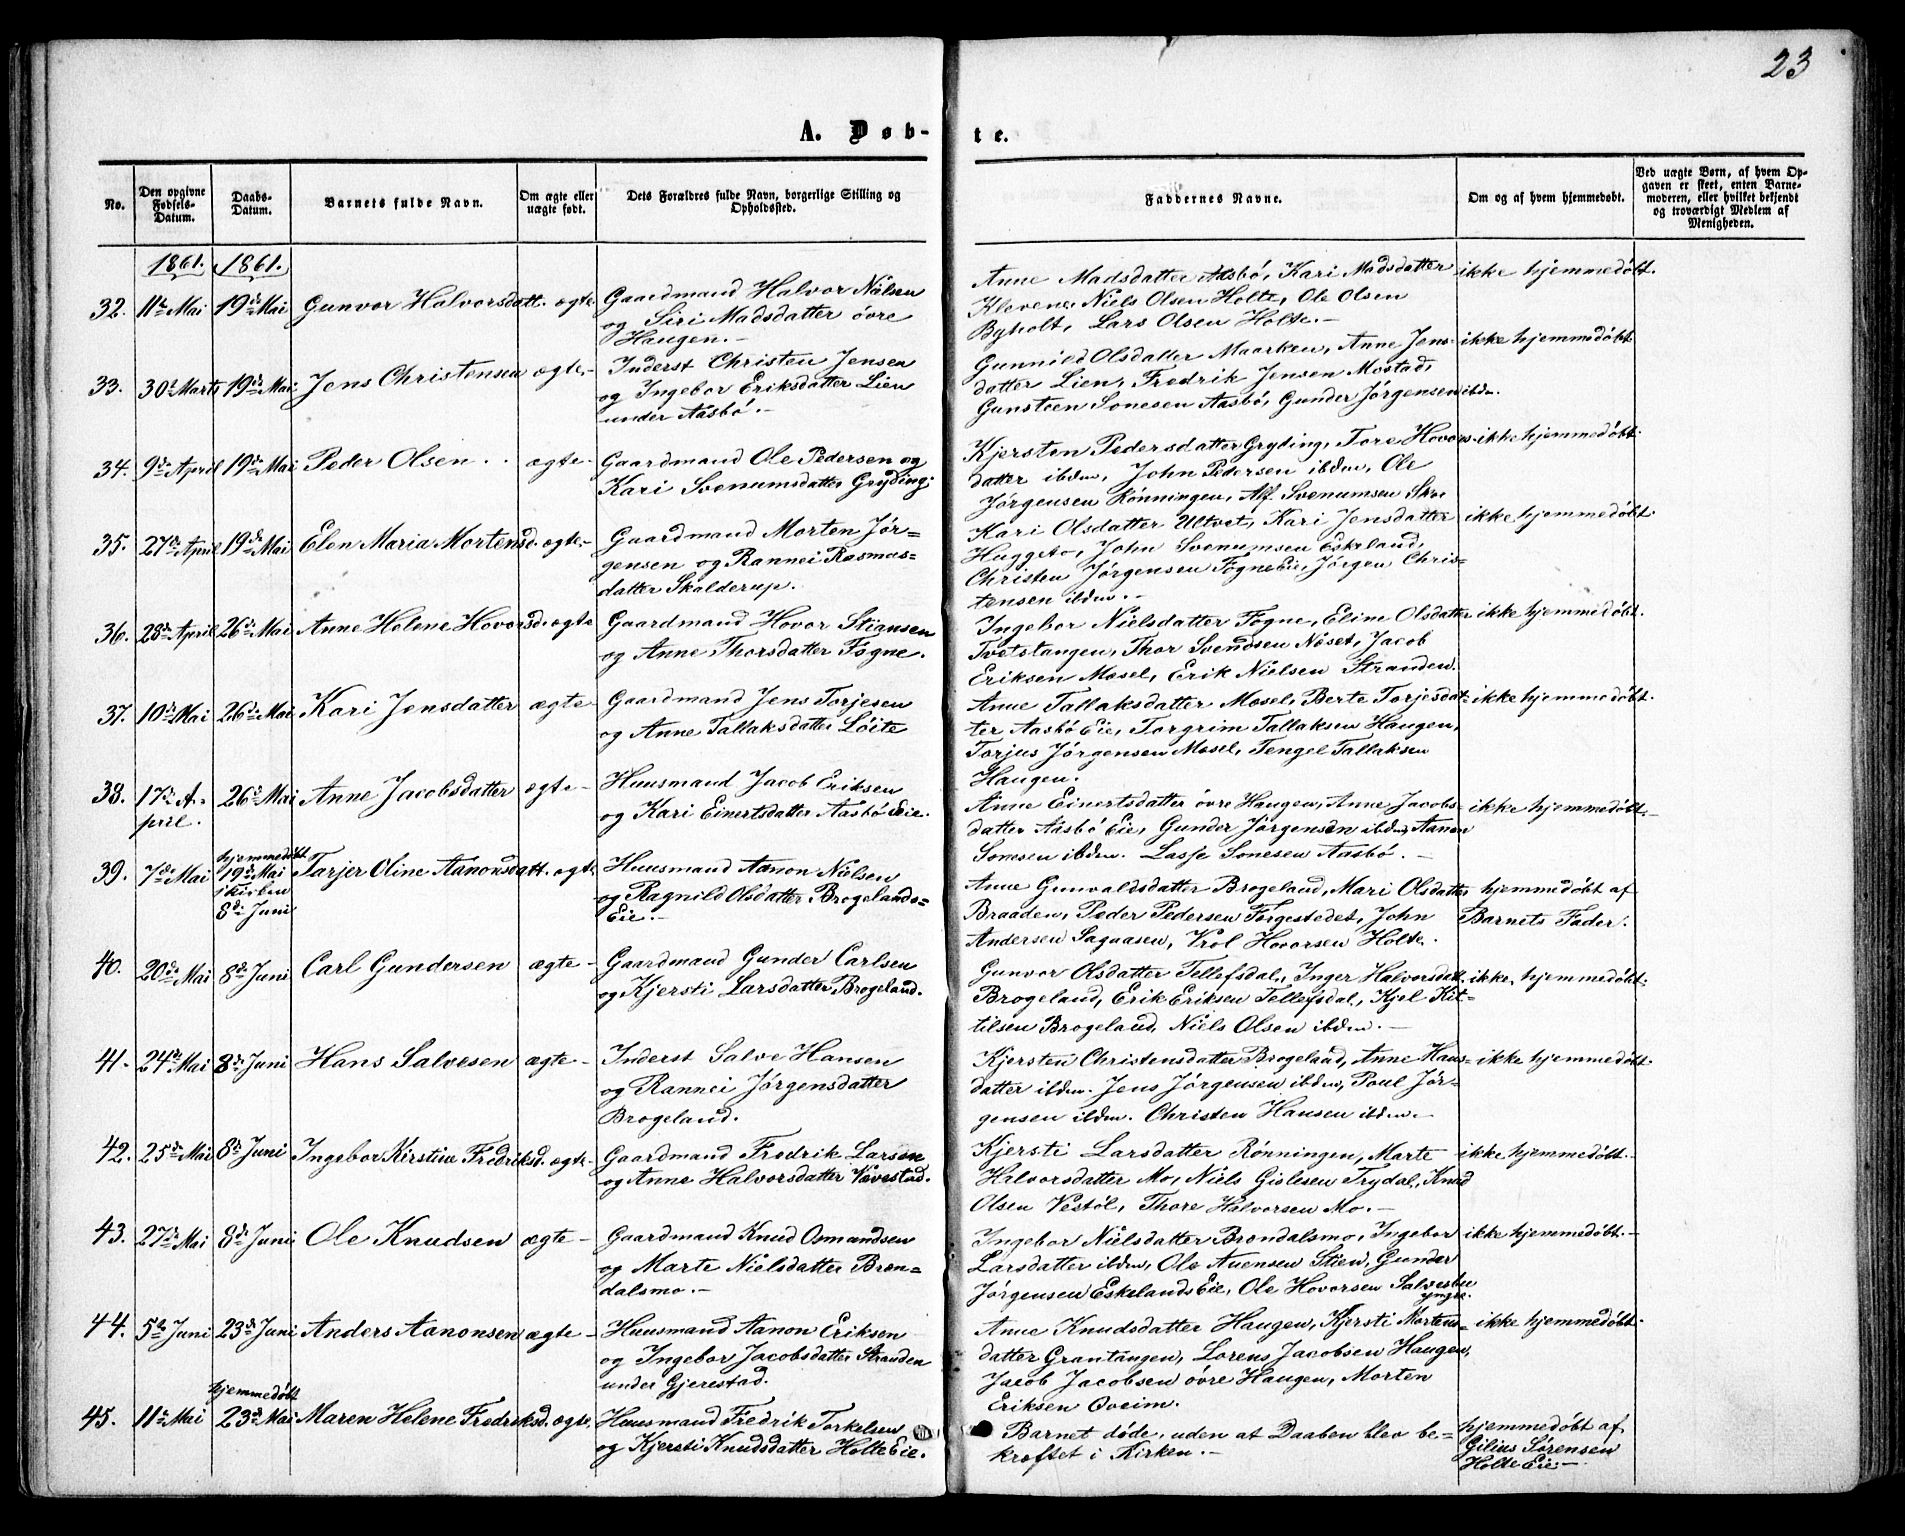 23
A. Døb-
te.
No.
Den opgivne Fødsels-Datum.
Daabs-Datum.
Barnets fulde Navn.
Om ægte eller uægte født.
Dets Forældres fulde Navn, borgerlige Stilling og Opholdssted.
Faddernes Navne.
Om og af hvem hjemmedøbt.
Ved uægte Børn, af hvem Op-
gaven er skeet, enten Barne-
moderen, eller hvilket bekjendt
og troværdigt Medlem af
Menigheden.
1861. 1861.
32. 11te Mai 19de Mai Gunvor Halvorsdatt. ægte
Gaardmand Halvor Nilsen
og Siri Madsdatter øvre
Haugen.-
Anne Madsdatter Aasbø, Kari Madsdatter
Klovene, Niels Olsen Holte, Ole Olsen
Byholt, Lars Olsen Holte.-
ikke hjemmedøbt.
33. 30te Marts 19de Mai Jens Christensen ægte-
Inderst Christen Jensen
og Ingebor Eriksdatter Lien
under Aasbø.-
Gunnild Olsdatter Maarken, Anne Jens-
datter Lien, Fredrik Jensen Mostad,
Gunsteen Sonesen Aasbø, Gunder Jørgensen ibdm.
ikke hjemmedøbt
34. 9de April 19de Mai Peder Olsen ægte-
Gaardmand Ole Pedersen og
Kari Svenumsdatter Gryding.
Kjersten Pedersdatter Gryding, Tore Hovors-
datter ibdm, John Pedersen ibdm, Ole
Jørgensen Rønningen, Alf Svenumsen Skre
ikke hjemmedøbt.
35. 27de April 19de Mai Elen Maria Mortensd. ægte-
Gaardmand Morten Jør-
gensen og Rannei Rasmus-
datter Skolderup.
Kari Olsdatter Ultvet, Kari Jensdatter
Huggeto, John Svenumsen Eskeland,
Christen Jørgensen Fogne Eie, Jørgen Chris-
tensen ibdm.-
ikke hjemmedøbt.
36. 28de April 26de Mai Anne Helene Hovorsd. ægte
Gaardmand Hovor Stiansen
og Anne Thorsdatter Fogne.
Ingebor Nielsdatter Fogne, Eline Olsdatter
Tvetstangen, Thor Svendsen Nøset, Jacob
Eriksen Mosel, Erik Nielsen Stranden.
ikke hjemmedøbt.
37. 10de Mai 26de Mai Kari Jensdatter ægte-
Gaardmand Jens Torjesen
og Anne Tallaksdatter Løite
Anne Tallaksdatter Mosel, Berte Torjesdat-
ter Aasbø Eie, Torgrim Tallaksen Haugen,
Torjus Jørgensen Mosel, Tengel Tallaksen
Haugen.
ikke hjemmedøbt.
38. 17de A-
pril. 26de Mai Anne Jacobsdatter ægte-
Huusmand Jacob Eriksen
og Kari Einertsdatter Aasbø Eie.
Anne Einertsdatter øvre Haugen, Anne Jacobs-
datter Aasbø Eie, Gunder Jørgensen ibdm, Aanon
Sonesen ibdm. Lasse Sonesen Aasbø.-
ikke hjemmedøbt.-
39. 7de Mai
hjemmedøbt
19de Mai
i kirken
8de Juni
Tarjer Oline Aanonsdatt. ægte
Huusmand Aanon Nielsen
og Ragnild Olsdatter Brogelands-
Eie.-
Anne Gunvaldsdatter Brogeland, Mari Olsdatter
Braaden, Peder Pedersen Forgestedet, John
Andersen Sagaasen, Vrol Hovorsen Holte.
hjemmedøbt af
Barnets Fader.
40. 20de Mai 8de Juni Carl Gundersen ægte-
Gaardmand Gunder Carlsen
og Kjersti Larsdatter Brogeland.
Gunvor Olsdatter Tellefsdal, Inger Halvorsdatt.
Brogeland, Erik Eriksen Tellefsdal, Kjel Kit-
tilsen Brogeland, Niels Olsen ibdm.-
ikke hjemmedøbt.
41. 24de Mai 8de Juni Hans Salvesen ægte-
Inderst Salve Hansen
og Rannei Jørgensdatter
Brogeland.
Kjersten Christensdatter Brogeland, Anne Hans-
datter ibdm. Jens Jørgensen ibdm, Poul Jør-
gensen ibdm. Christen Hansen ibdm.-
ikke hjemmedøbt.
42. 25de Mai 8de Juni Ingebor Kirstine Fredriksd. ægte-
Gaardmand Fredrik Larsen
og Anne Halvorsdatter Vævestad.
Kjersti Larsdatter Rønningen, Marte
Halvorsdatter Mo, Niels Gislesen Trydal, Knud
Olsen Vestøl, Thore Halvorsen Mo.-
ikke hjemmedøbt.-
43. 27de Mai 8de Juni Ole Knudsen ægte-
Gaardmand Knud Osmundsen
og Marte Nielsdatter Bren-
dalsmo.-
Ingebor Nielsdatter Brendalsmo, Ingebor
Larsdatter ibdm, Ole Auensen Stien, Gunder
Jørgensen Eskelands Eie, Ole Hovorsen Salvesbu
yngre.
ikke hjemmedøbt.-
44. 5te Juni 23de Juni Anders Aanonsen ægte-
Huusmand Aanon Eriksen
og Ingebor Jacobsdatter Stranden
under Gjerestad.
Anne Knudsdatter Haugen, Kjersti Mortens-
datter Grantangen, Lorens Jacobsen Haugen,
Jacob Jacobsen øvre Haugen, Morten
Eriksen Qveim.
ikke hjemmedøbt.
45. 11te Mai
hjemmedøbt
23de Mai
Maren Helene Fredriksd. ægte.
Huusmand Fredrik Torkelsen
og Kjersti Knudsdatter Holte Eie.
Barnet døde, uden at Daaben blev be-
kræftet i Kirken.-
hjemmedøbt af
Gilius Sørensen
Holte Eie.-